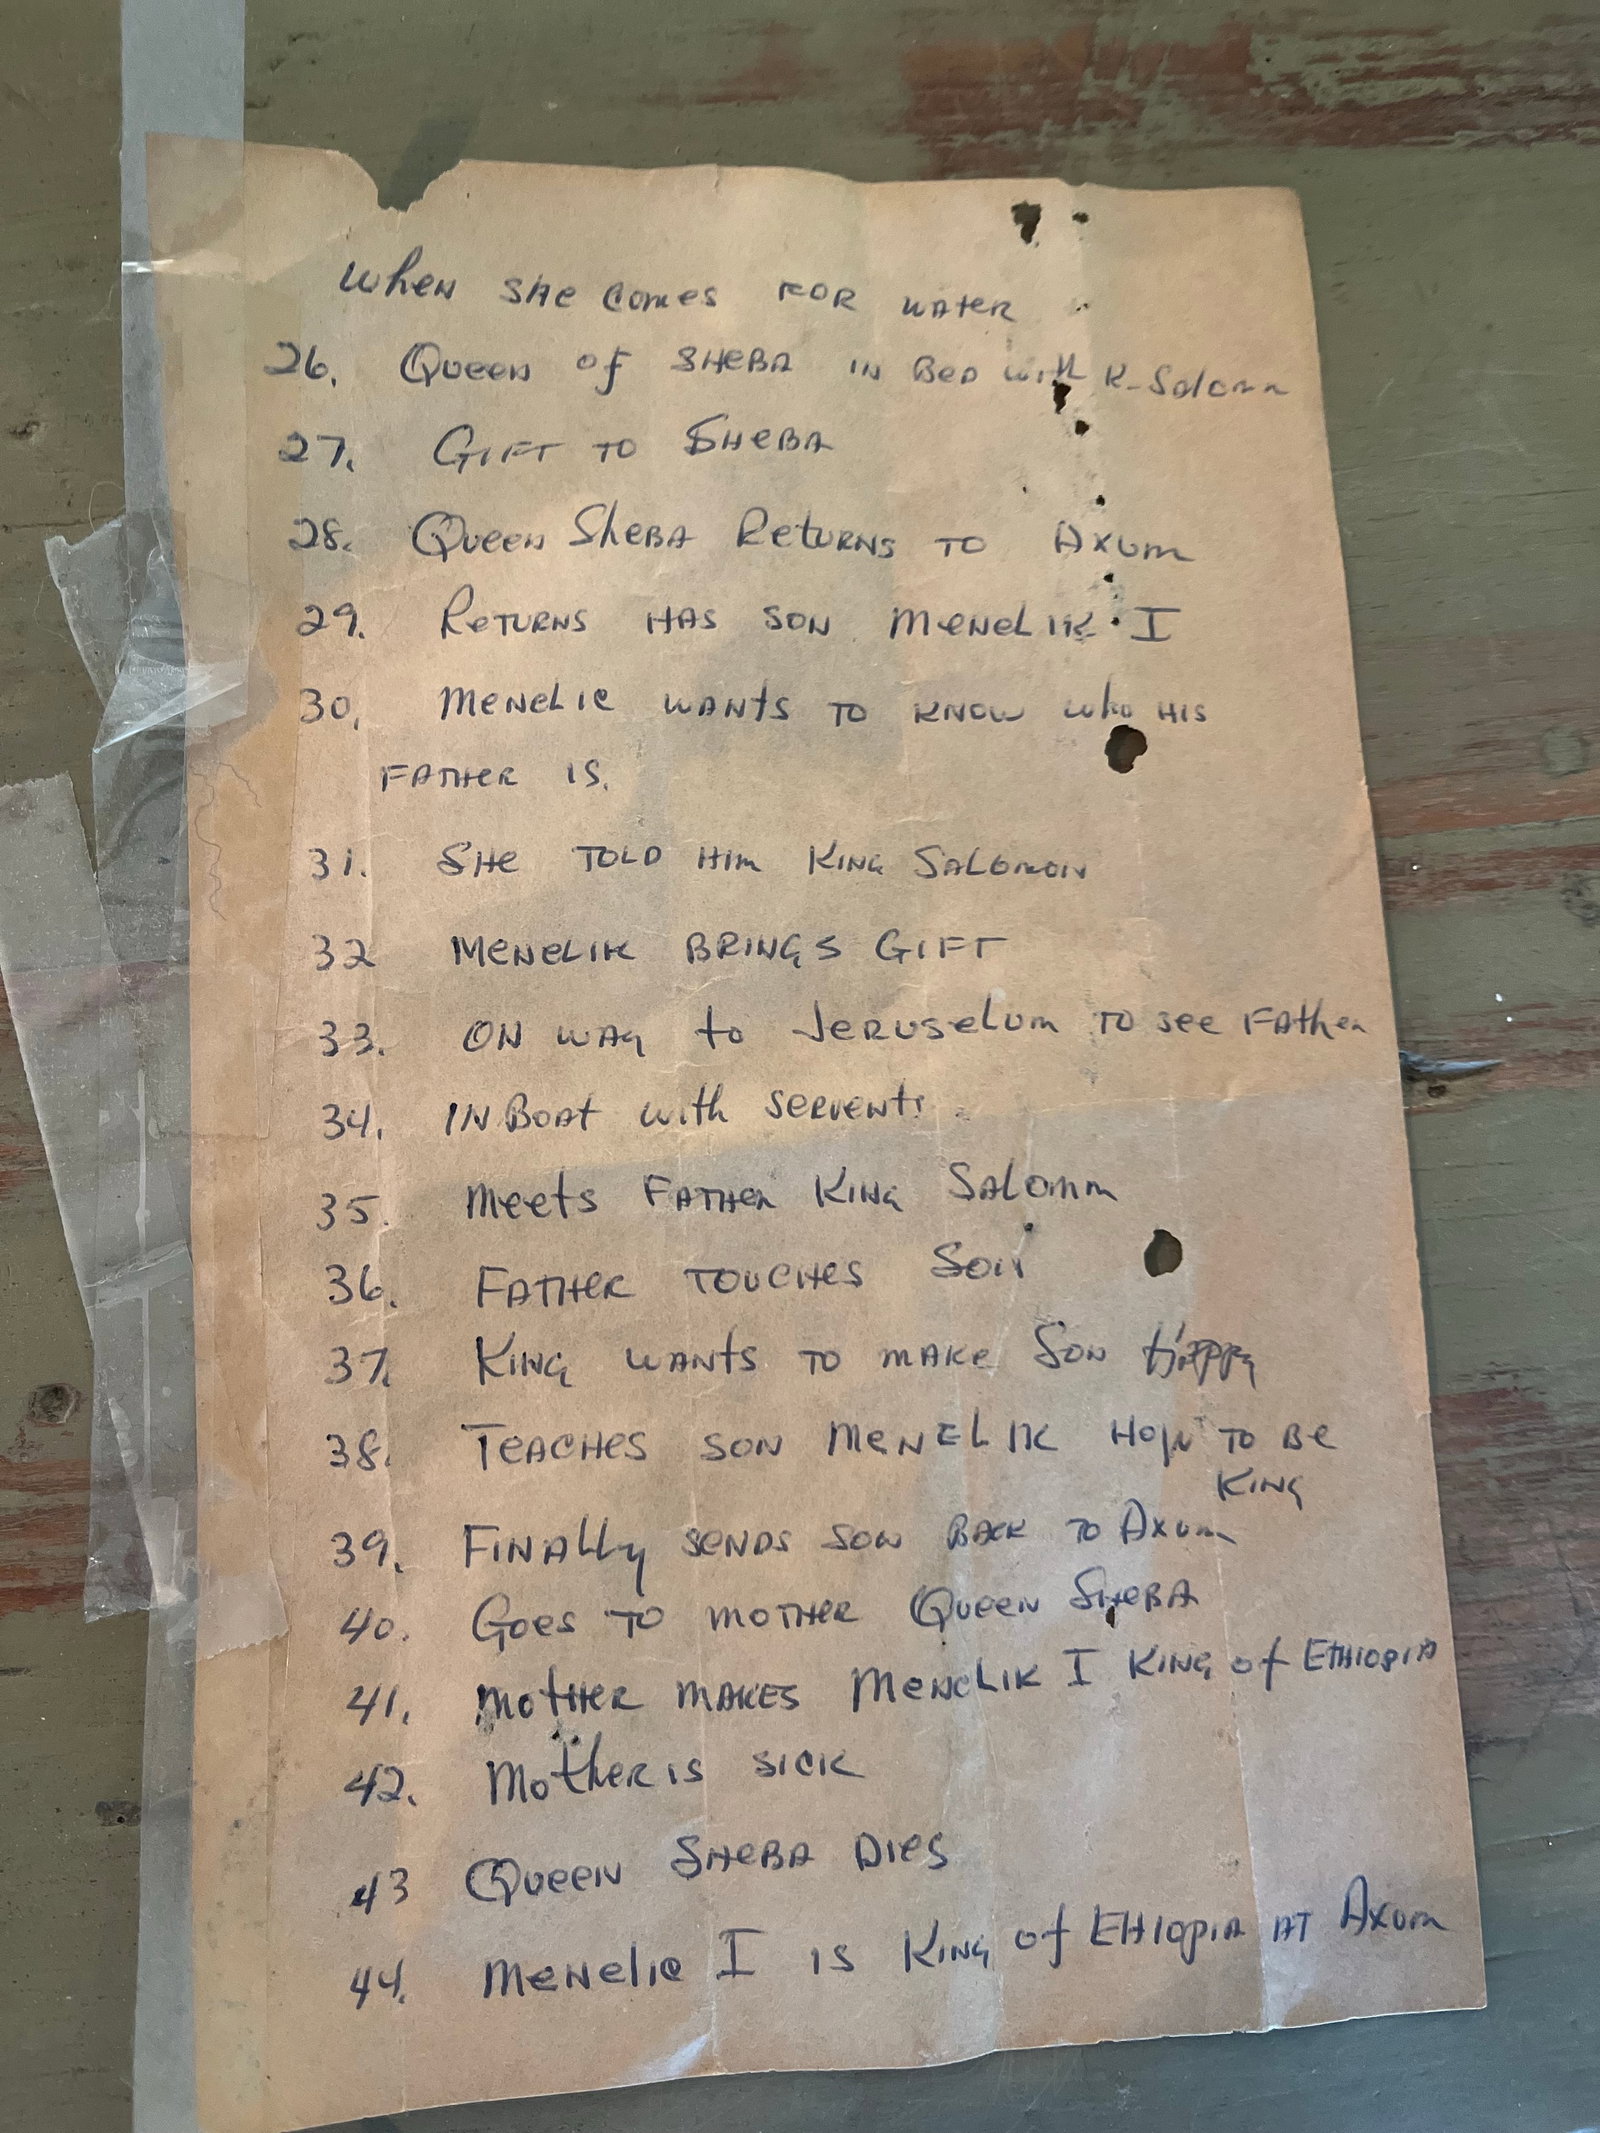 When SHe comes FOR WATER
26. Queen of SHeBA IN BeD with K-Solomn
27. GIFT TO SHeBA
28. Queen SheBA ReTURNS TO AXUm
29. ReTURNS HAS SON MeNeLIK I
30. MeNeLIC WANtS TO KNOW who HIS
FATHeR IS.
31. SHe TOLD HIm KING SALOMON
32 MeNeLIK BRINGS GIFT
33. ON WAY to JeRUSeLUm TO see FAtheR
34. IN BOAt with SeRVeNtS
35. MeetS FATHeR KING SALOmm
36. FATHeR TOUCHeS SON
37. KING WANtS TO MAKe SON HAPPY
38. TeACHeS SON MeNELIK HOW TO Be
KING
39. FINALLy SeNDS SON BACK TO AXUm
40. GOeS TO MOTHeR QUeeN SHeBA
41. MOtHeR MAKES MeNeLIK I KING of ETHIOPIA
42. MOtheR IS SICK
43 QUeeN SHeBA DIeS
44. MeNelIC I IS KING of EtHIOPIA AT AXUm